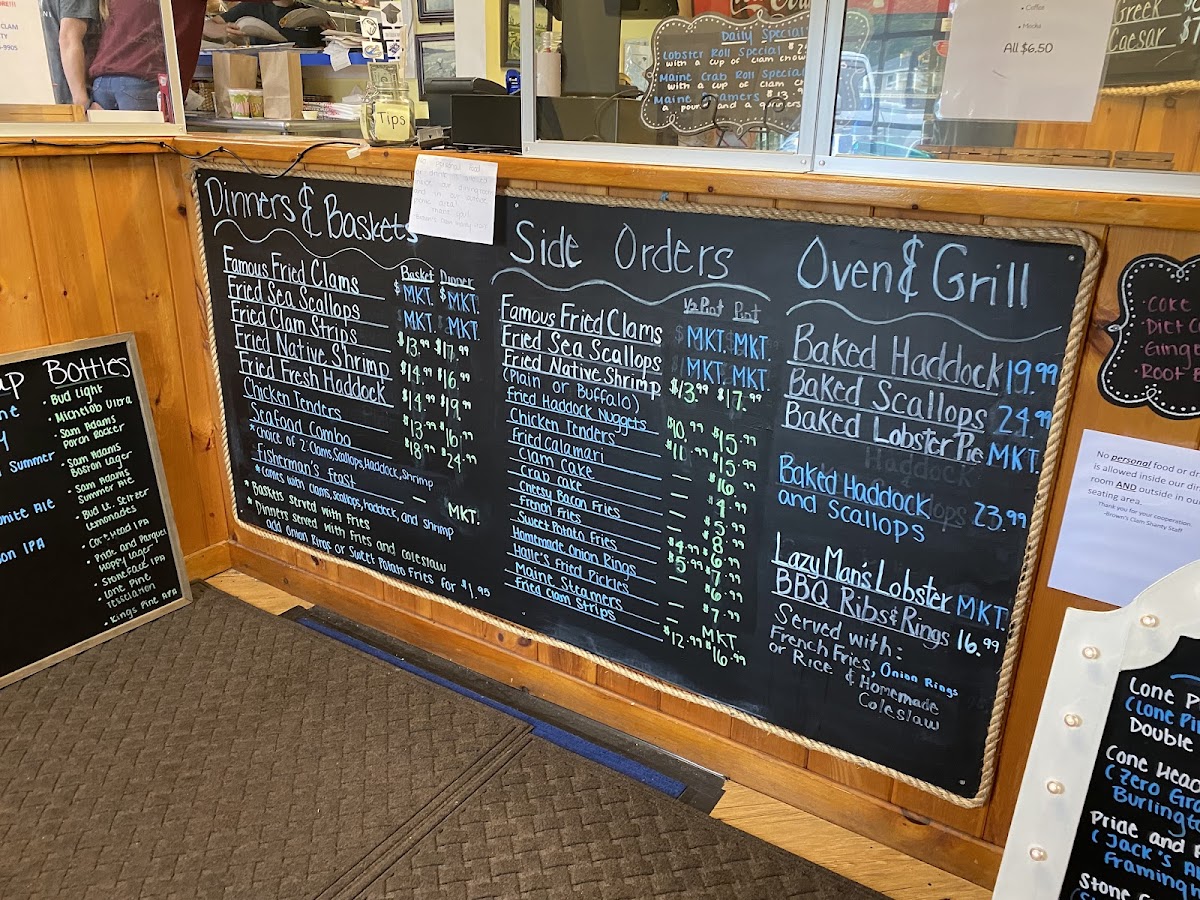 CLAM
TY
-9905
Tips
Daily Special
Lobster Roll Special
with a cup of clam
Maine Crab Roll Special
with a cup of clam
Maine Steamers
• Coffee
• Mocha
All $6.50
Greek
Caesar
Dinners & Baskets
Basket Dinner
Famous Fried Clams $ MKT. $ MKT.
Fried Sea Scallops MKT. MKT.
Fried Clam Strips $13.99 $17.99
Fried Native Shrimp $14.99 $16.99
Fried Fresh Haddock $14.99 $19.99
Chicken Tenders $13.99 $16.99
Seafood Combo $18.99 $24.99
*choice of 2: Clams, Scallops, Haddock, Shrimp
Fisherman's Feast MKT.
*comes with clams, scallops, haddock, and shrimp
* Baskets served with fries
* Dinners served with Fries and coleslaw
add Onion Rings or Sweet Potato Fries for $1.95
Side Orders
1/2 Pint Pint
Famous Fried Clams $ MKT. MKT.
Fried Sea Scallops MKT. MKT.
Fried Native Shrimp $13.99 $17.99
(Plain or Buffalo)
Fried Haddock Nuggets $10.99 $15.99
Chicken Tenders $11.99 $15.99
Fried Calamari
Clam Cake
Crab Cake
Cheesy Bacon Fries
French Fries
Sweet Potato Fries
Homemade Onion Rings
Halle's Fried Pickles
Maine Steamers MKT.
Fried Clam Strips $12.99 $16.99
Oven & Grill
Baked Haddock 19.99
Baked Scallops 24.99
Baked Lobster Pie MKT.
Baked Haddock
and scallops 23.99
Lazy Man's Lobster MKT.
BBQ Ribs & Rings 16.99
Served with:
French Fries, Onion Rings
or Rice & Homemade
Coleslaw
ap Bottles
Bud Light
• Michelob Ultra
• Sam Adams
Porch Rocker
• Sam Adams
Boston Lager
• Sam Adams
Summer Ale
• Bud Lt. Seltzer
Lemonades
• Cone Head IPA
• Pride and Parquet
Hoppy Lager
• Stoneface IPA
• Lone Pine
Tessellation
• Kings Pine APA
Summer
hite Ale
on IPA
• Coke
• Diet
• Ginge
• Root B
No personal food or dr
is allowed inside our di
room AND outside in ou
seating area.
Thank you for your cooperation
-Brown's Clam Shanty Staff
Lone P
(Lone Pi
Double
Cone Head
(Zero Gra
Burlingt
Pride and P
(Jack's A
Framingh
Stone F